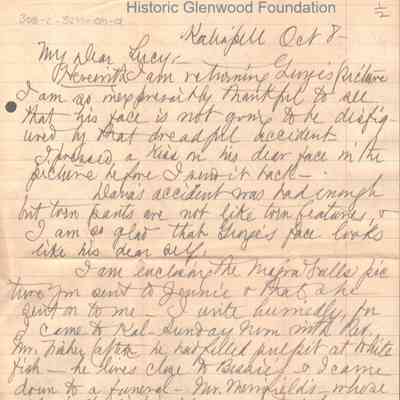 Historic Glenwood Foundation
1/2
Kalispell Oct 8-
My Dear Lucy,-
Herewith I am returning George's picture
I am so inexpressibly thankful to see
that his face is not going to be disfig-
ured by that dreadful accident-
I pressed a kiss on his dear face in the
picture before I send it back-.
accident was bad enough
but torn pants are not like torn features, &
I am so glad that George's face looks
like his dear self.
I am enclosing the Falls pic
ture Jim sent to Jennie & that she
sent on to me- I write hurriedly, for
I came to Kal- Sunday with Rev.
Mr. Fisher after he had filled pulpit at White
fish- he lives close to & I came
down to a funeral- Mr. whose